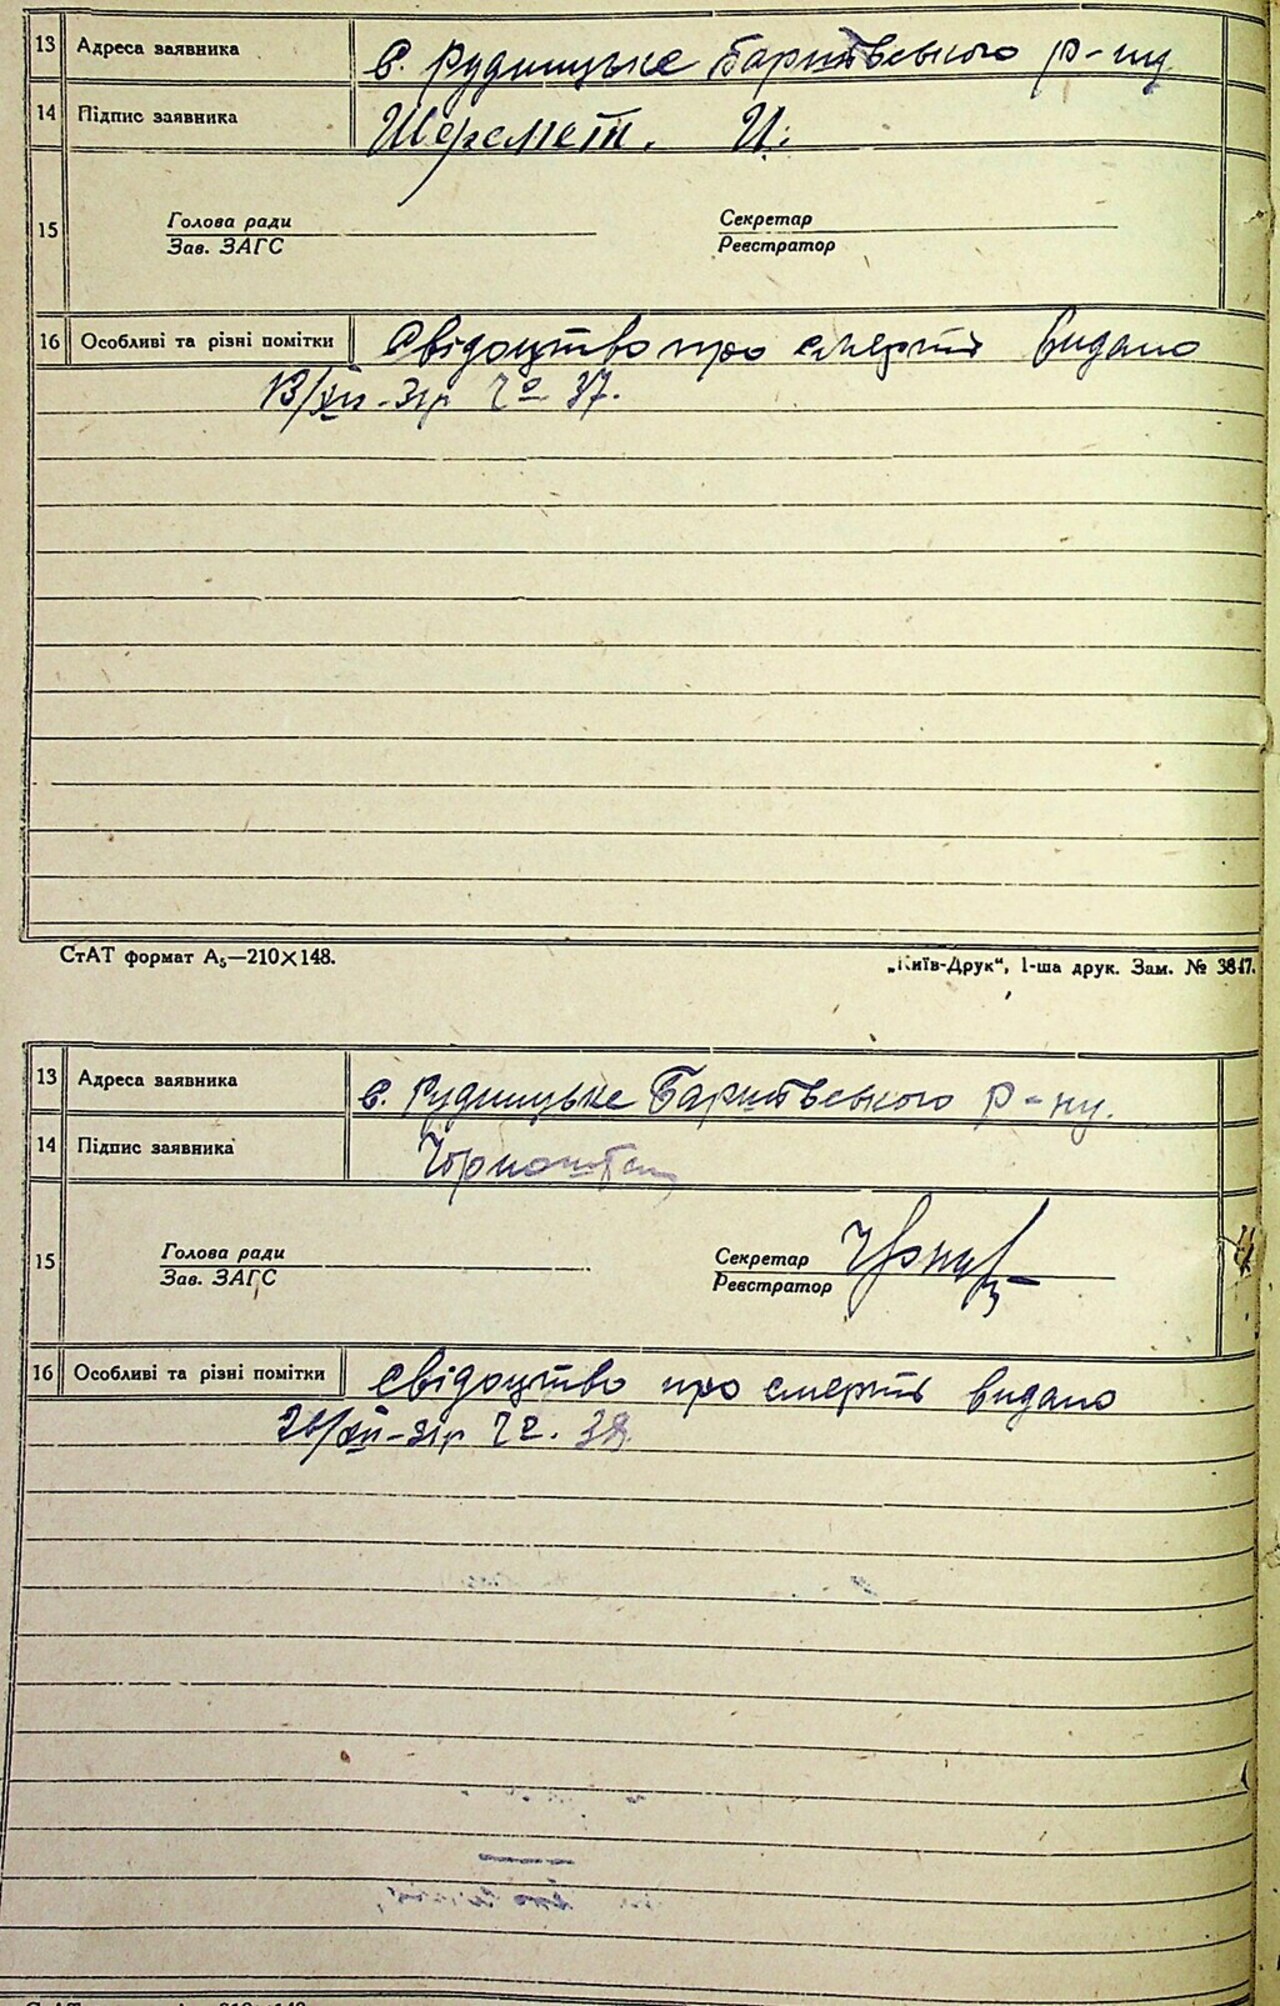 13 Адреса заявника с. Рудницьке Баришівського р-ну
14 Підпис заявника Шеремет. И.
15 Голова ради Секретар
Зав. ЗАГС Реєстратор
16 Особливі та різні помітки Свідоцтво про смерть видано
13/XII-31р 37.
СтАТ формат А₅—210×148. „Київ-Друк“, 1-ша друк. Зам. № 3847.
13 Адреса заявника с. Рудницьке Баришівського р-ну.
14 Підпис заявника
15 Голова ради Секретар
Зав. ЗАГС Реєстратор
16 Особливі та різні помітки Свідоцтво про смерть видано
/XII-31р 38.